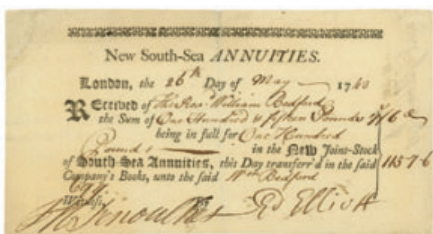 New South-Sea ANNUITIES.
London, the 26th Day of May 1740
REceived of The Revd. William Bedford
the Sum of One Hundred & fifteen Pounds 7/6
being in full for One Hundred
Pounds in the New Joint-Stock
of South Sea Annuities, this Day transferr'd in the said 115-7-6
Company's Books, unto the said Wm Bedford
Witness, By Ed Elliott